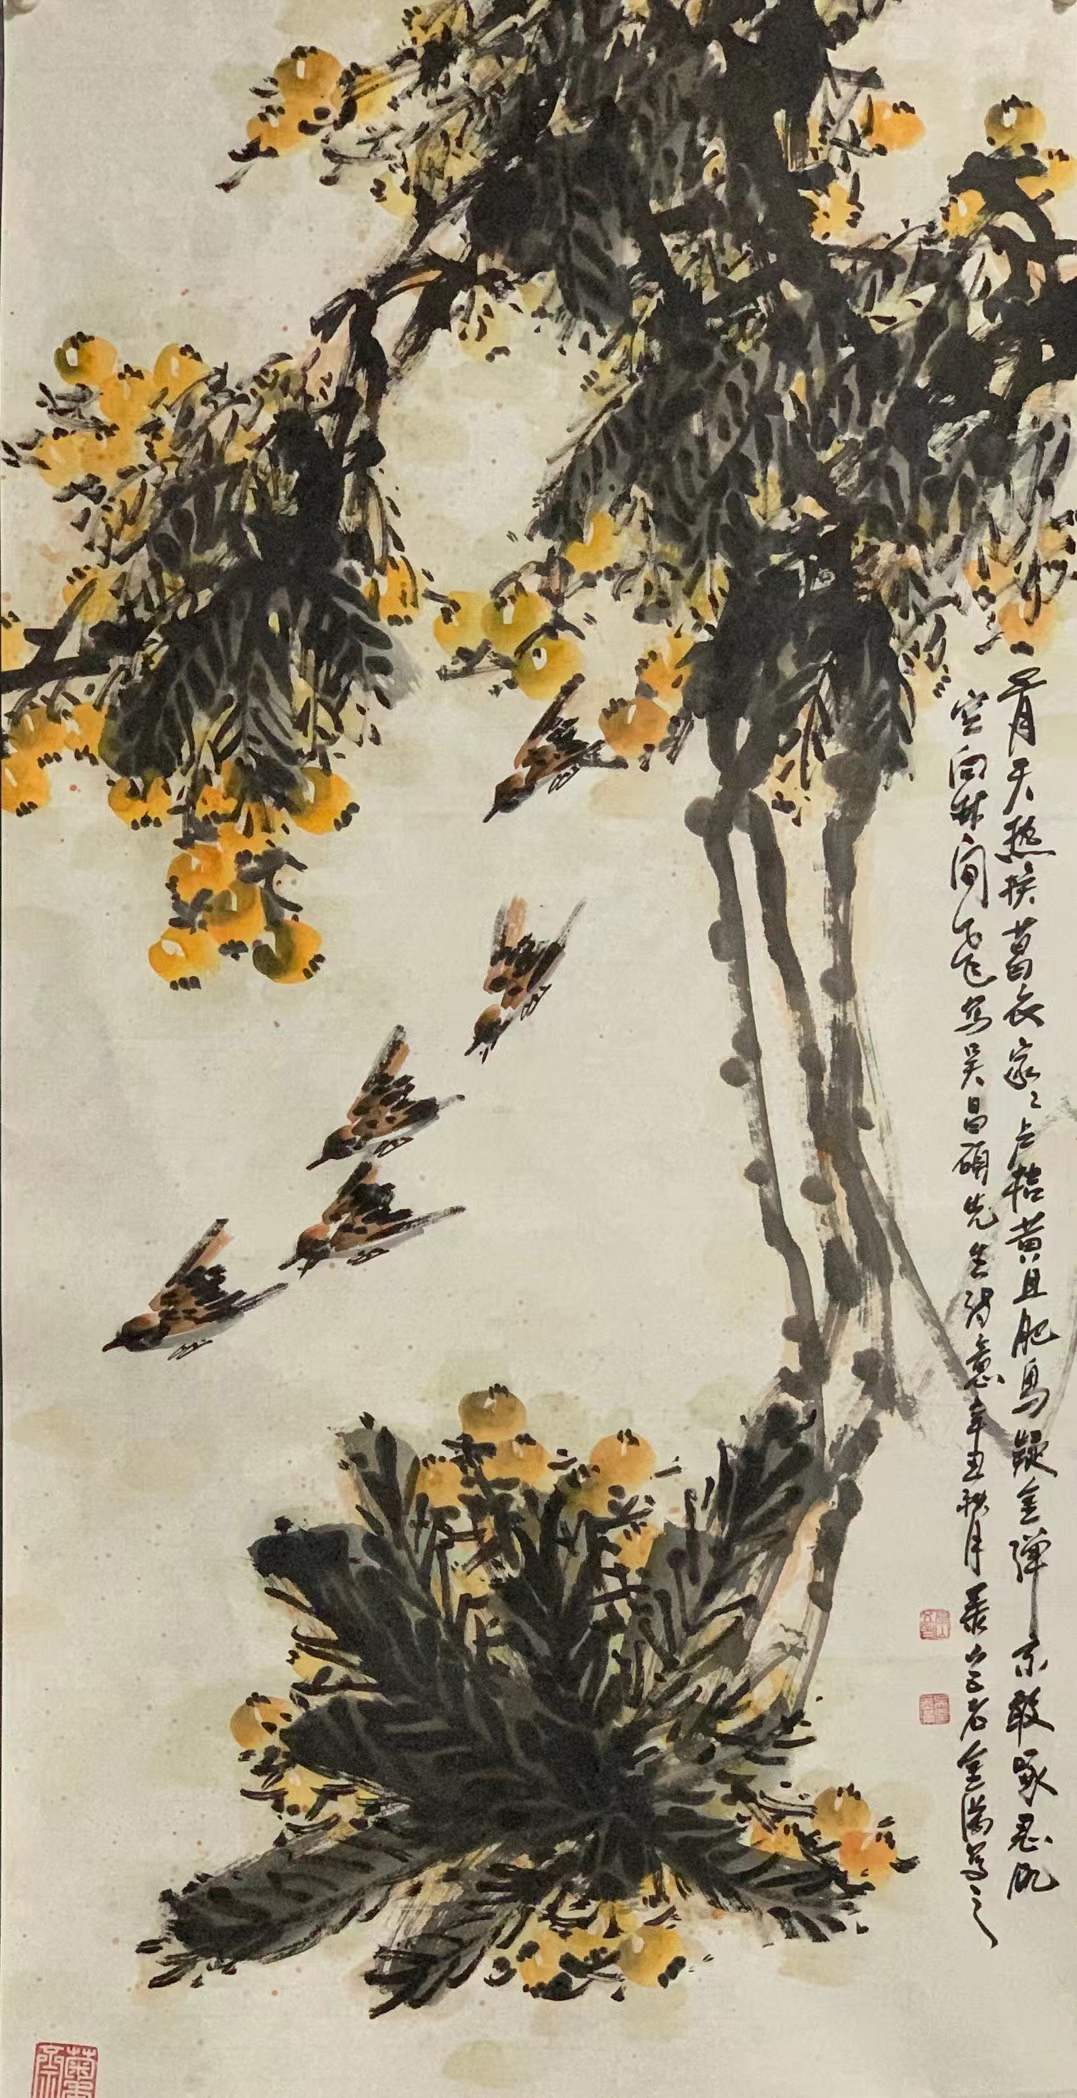 五月天热换葛衣家〻卢桔黄且肥鸟疑金弹不敢啄忍饥
空向林间飞写吴昌硕先生诗意辛丑秋月老金满写之